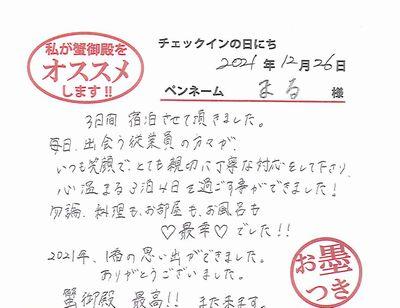 私が蟹御殿を
オススメ
します!!
チェックインの日にち
2021年12月26日
ペンネーム まる 様
3日間 宿泊させて頂きました。
毎日、出会う従業員の方々が、
いつも笑顔で、とても親切に丁寧な対応をして下さり、
心温まる3泊4日を過ごす事ができました!
勿論、料理も、お部屋も、お風呂も
♡最幸♡でした!!
2021年、1番の思い出ができました。
ありがとうございました。
蟹御殿 最高!! また来ます。
お墨
つき